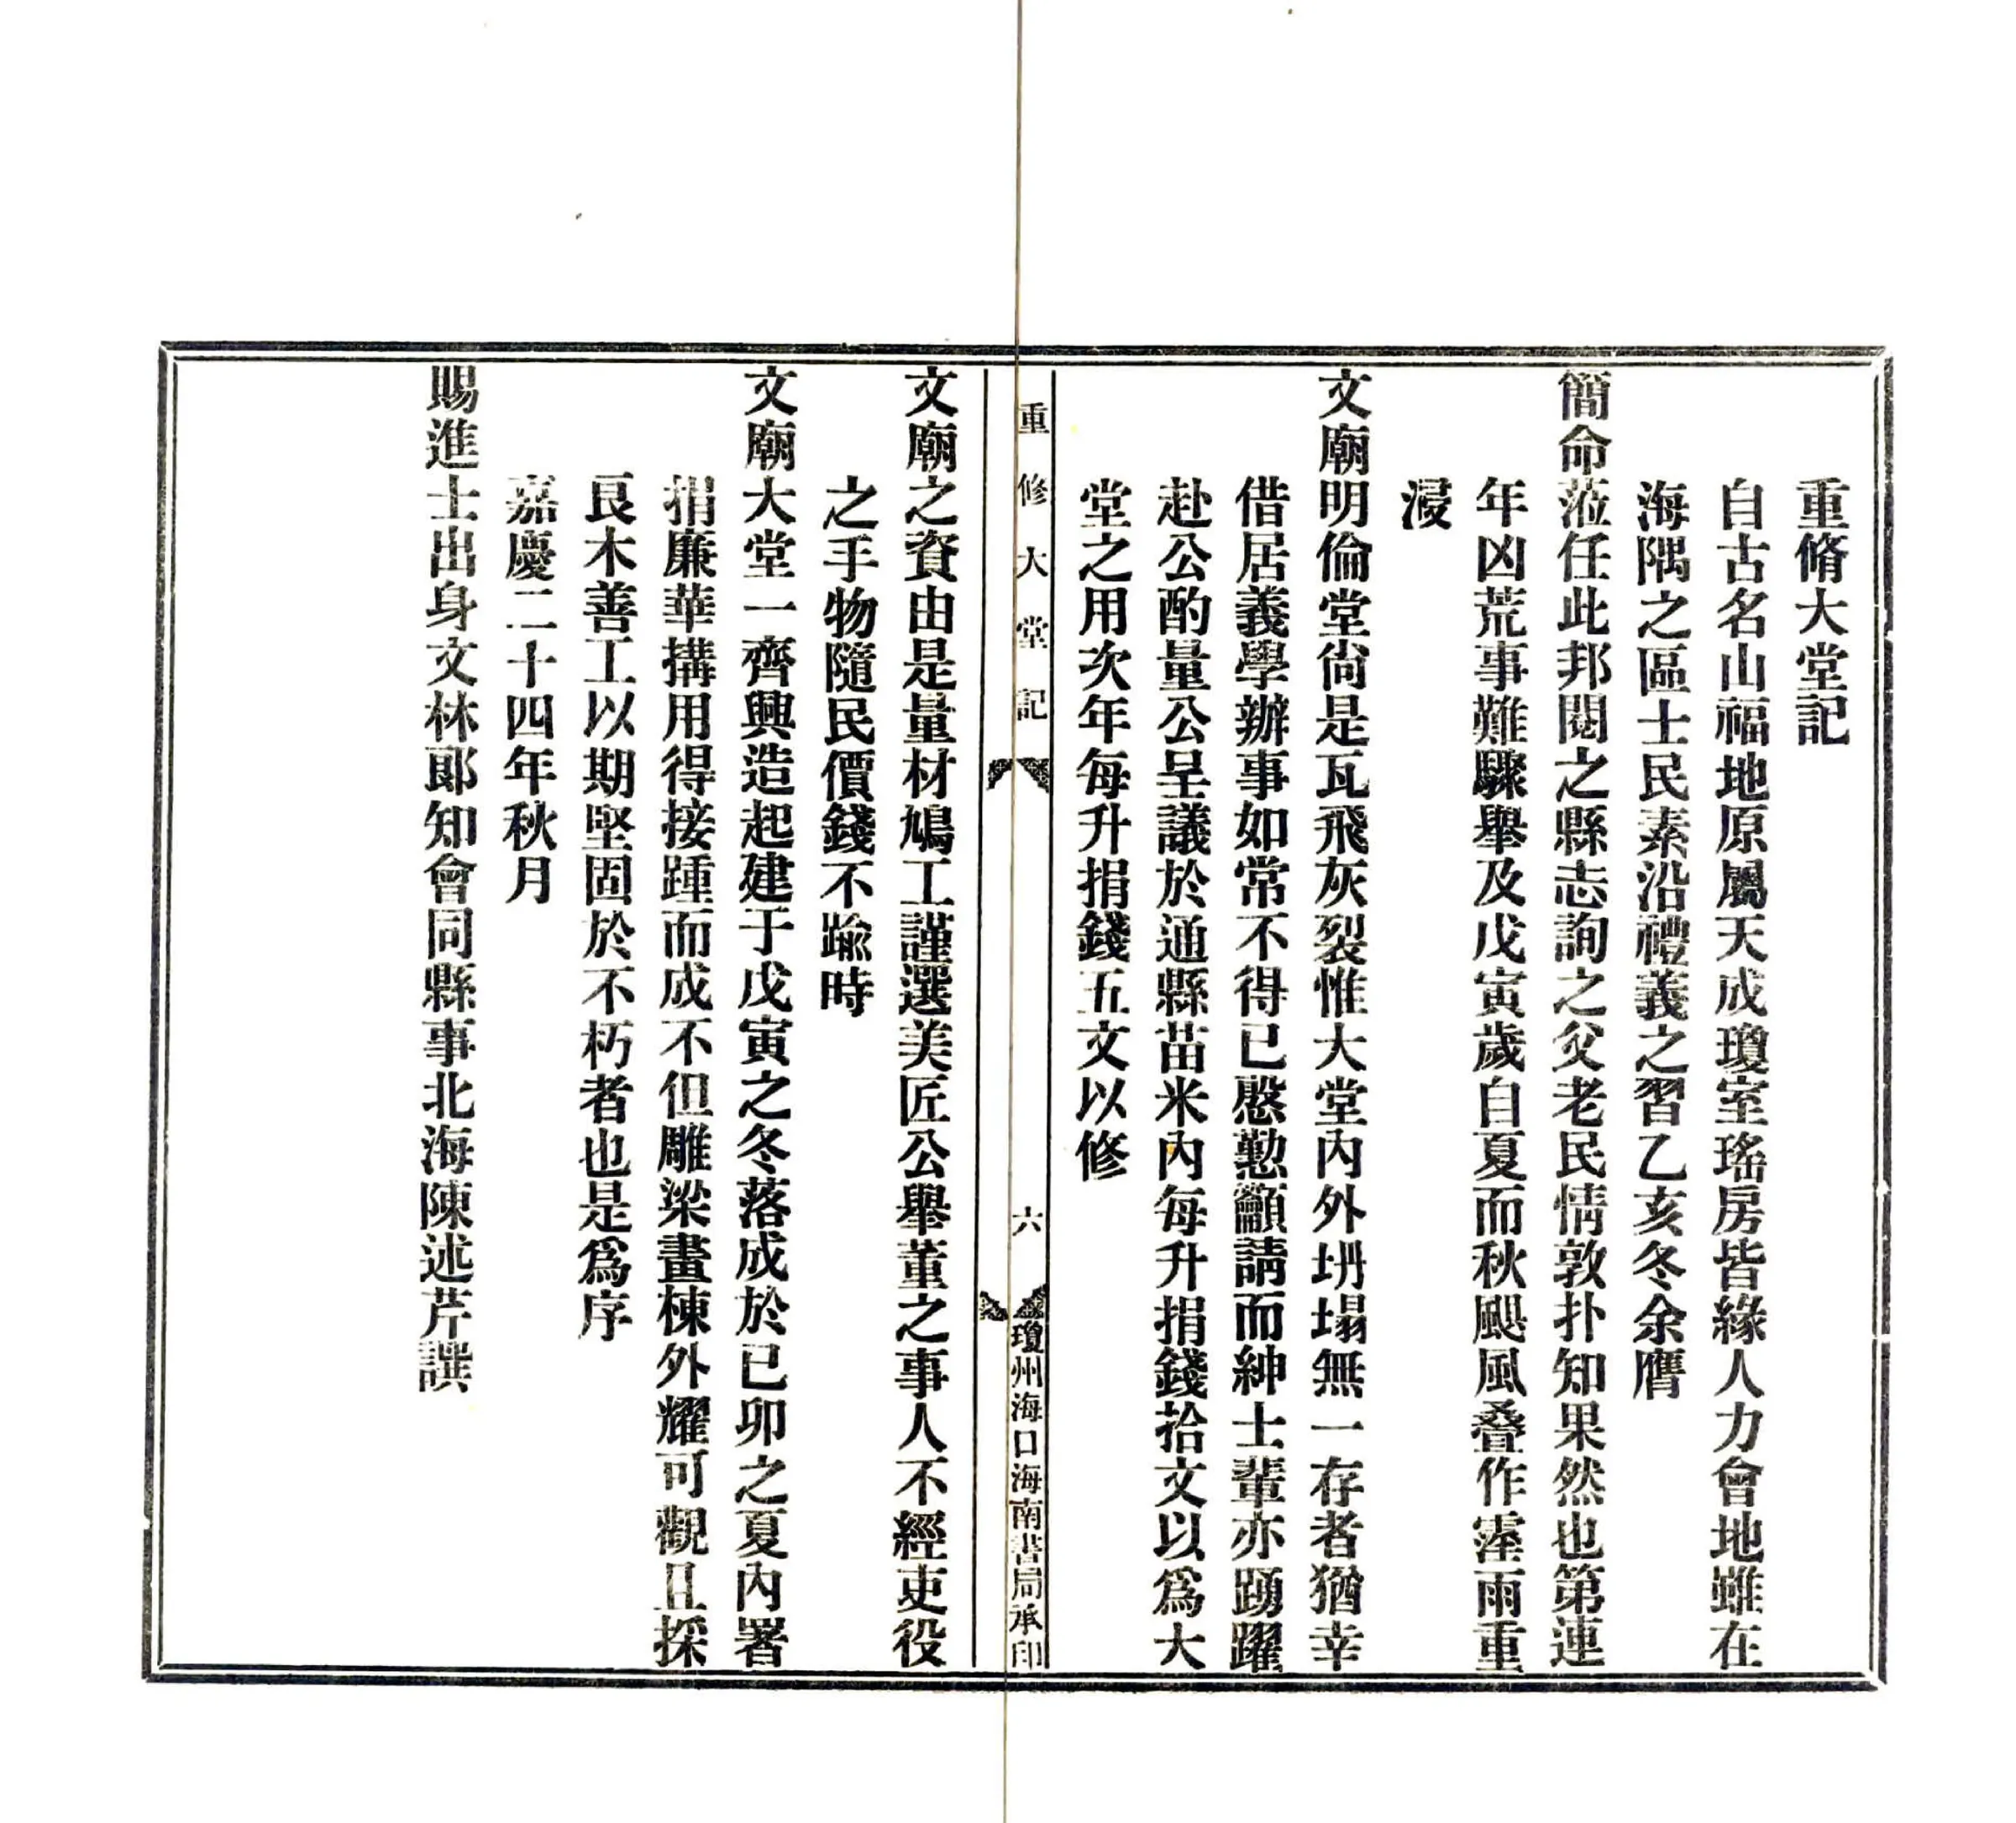 重脩大堂記
自古名山福地原屬天成瓊室瑤房皆緣人力會地雖在
海隅之區士民素沿禮義之習乙亥冬余膺
簡命蒞任此邦閱之縣志詢之父老民情敦扑知果然也第連
年凶荒事難驟舉及戊寅歲自夏而秋颶風叠作霪雨重
浸
文廟明倫堂尙是瓦飛灰裂惟大堂內外坍塌無一存者猶幸
借居義學辦事如常不得已慇懃籲請而紳士輩亦踴躍
赴公酌量公呈議於通縣苗米內每升捐錢拾文以爲大
堂之用次年每升捐錢五文以修
重修大堂記
六
瓊州海口海南書局承印
文廟之資由是量材鳩工謹選美匠公舉董之事人不經吏役
之手物隨民價錢不踰時
文廟大堂一齊興造起建于戊寅之冬落成於已卯之夏內署
捐廉華搆用得接踵而成不但雕梁畫棟外耀可觀且採
艮木善工以期堅固於不朽者也是爲序
嘉慶二十四年秋月
賜進士出身文林郎知會同縣事北海陳述芹譔